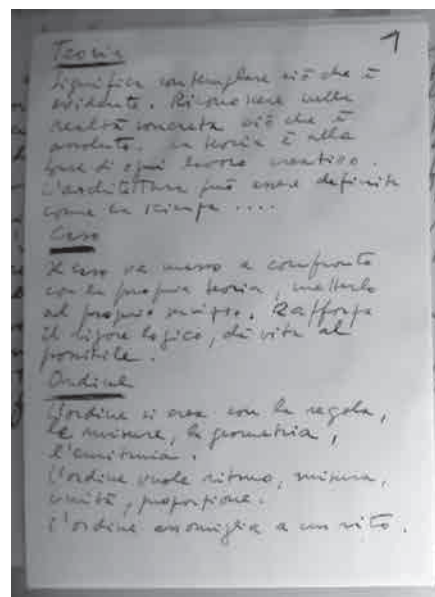 1
Teoria
significa contemplare ciò che è
evidente. Riconoscere nella
realtà concreta ciò che è
assoluto. La teoria è alla
base di ogni lavoro creativo.
L'architettura può essere definita
come la scienza ....
Caso
Il caso va messo a confronto
con la propria teoria, metterlo
al proprio servizio. Rafforza
il rigore logico, dà vita al
possibile.
Ordine
L'ordine si crea con la regola,
le misure, la geometria,
l'euritmia.
L'ordine vuole ritmo, misura,
unità, proporzione.
L'ordine assomiglia a un rito.